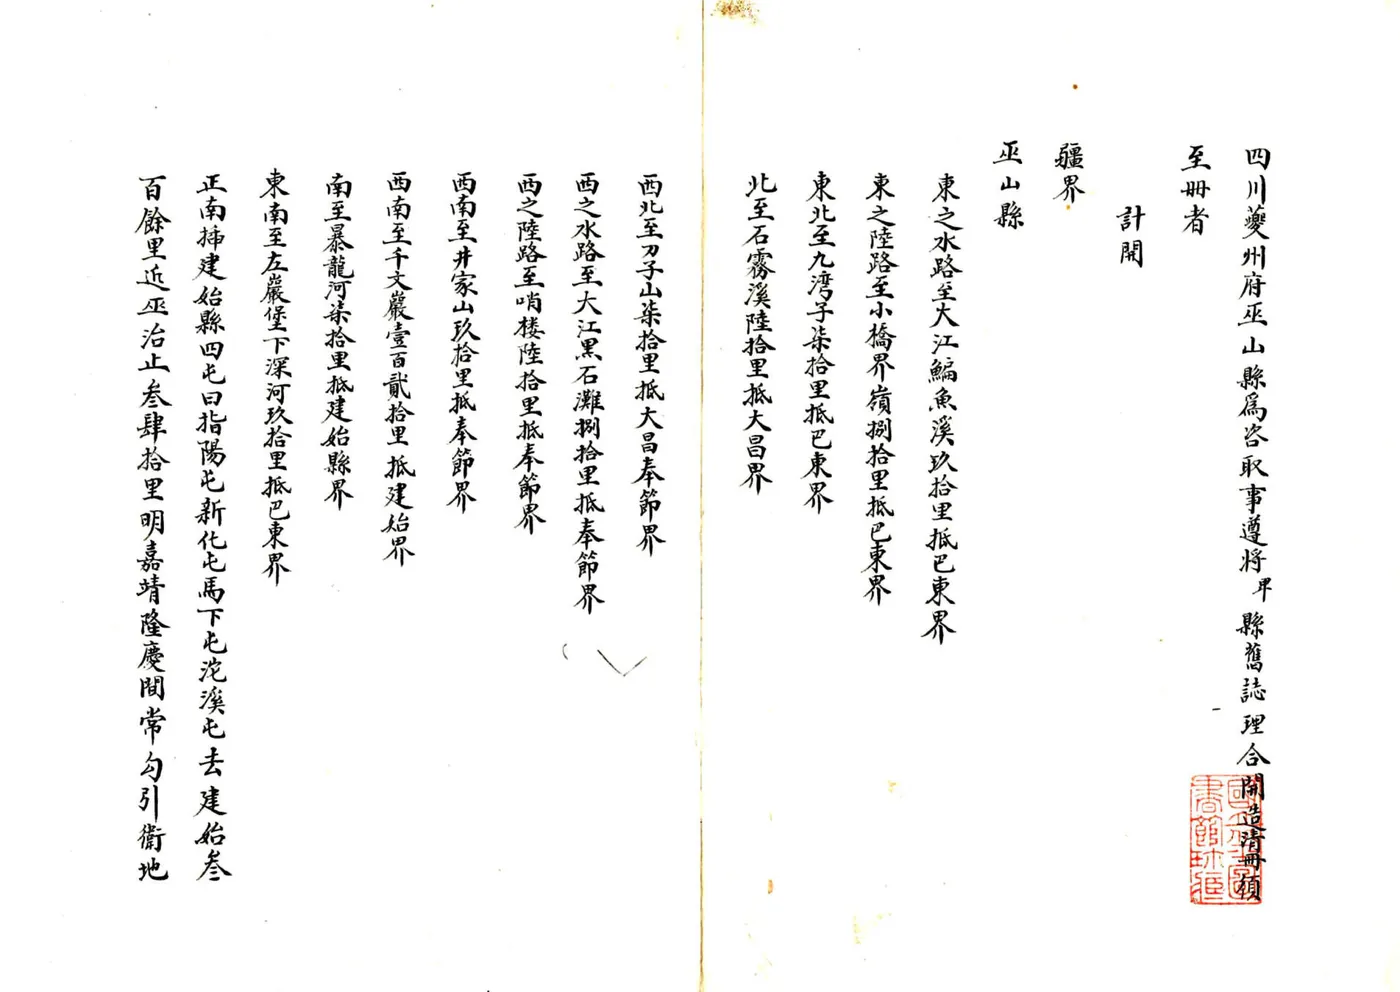 四川夔州府巫山縣爲咨取事遵將卑縣舊誌理合開造清冊須
至冊者
計開
疆界
巫山縣
東之水路至大江鯿魚溪玖拾里抵巴東界
東之陸路至小橋界嶺捌拾里抵巴東界
東北至九湾子柒拾里抵巴東界
北至石霧溪陸拾里抵大昌界
西北至刀子山柒拾里抵大昌奉節界
西之水路至大江黑石灘捌拾里抵奉節界
西之陸路至哨楼陸拾里抵奉節界
西南至井家山玖拾里抵奉節界
西南至千文巖壹百貳拾里抵建始界
南至暴龍河柒拾里抵建始縣界
東南至左巖堡下深河玖拾里抵巴東界
正南揷建始縣四屯曰指陽屯新化屯馬下屯沱溪屯去建始叁
百餘里近巫治止叁肆拾里明嘉靖隆慶間常勾引衛地
國立北平圖書館珍藏